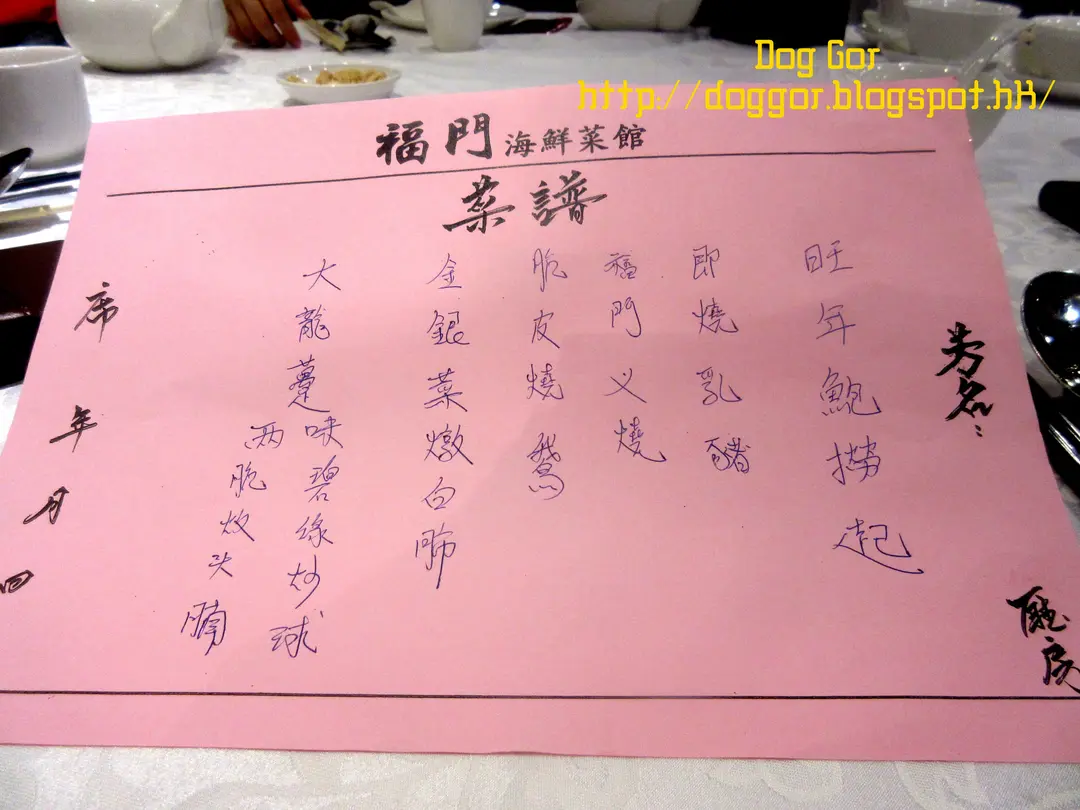 Dog Gor
http://doggor.blogspot.hk/
福門海鮮菜館
菜譜
芳名:
旺年鮑撈起
即燒乳豬
福門义燒
脆皮燒鵝
金銀菜燉白肺
大龍躉
味碧綠炒球
两脆炆头腩
席
年月
房